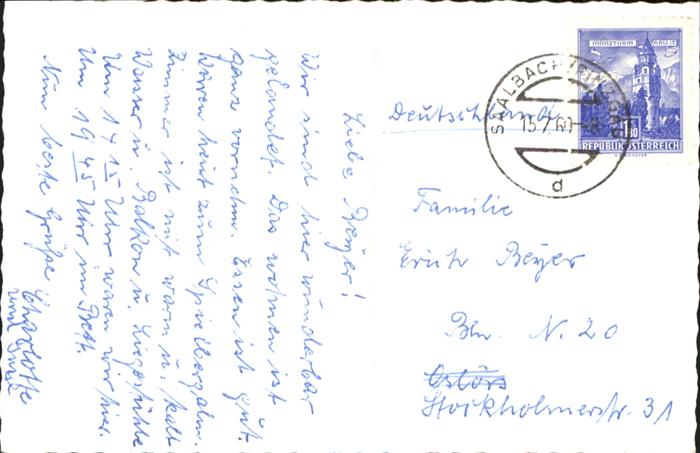 Liebe Beyer!
Wir sind hier wunderbar
gelandet. Das wohnen ist
ganz vornehm. Essen ist gut.
Waren heut zum Spielbergalm.
Zimmer ist mit warm u. kalt
Wasser u. Balkon u. Liegestühle
Um 17 15 Uhr waren wir hier.
Um 19 45 Uhr im Bett.
Nun beste Grüße Charlotte
und
MÜNZTURM HALL I.T.
S 1.80
REPUBLIK ÖSTERREICH
SAALBACH (PINZGAU)
15.7.60-8
d
Deutschland
Familie
Erich Beyer
Bln. N. 20
Stockholmerstr. 31